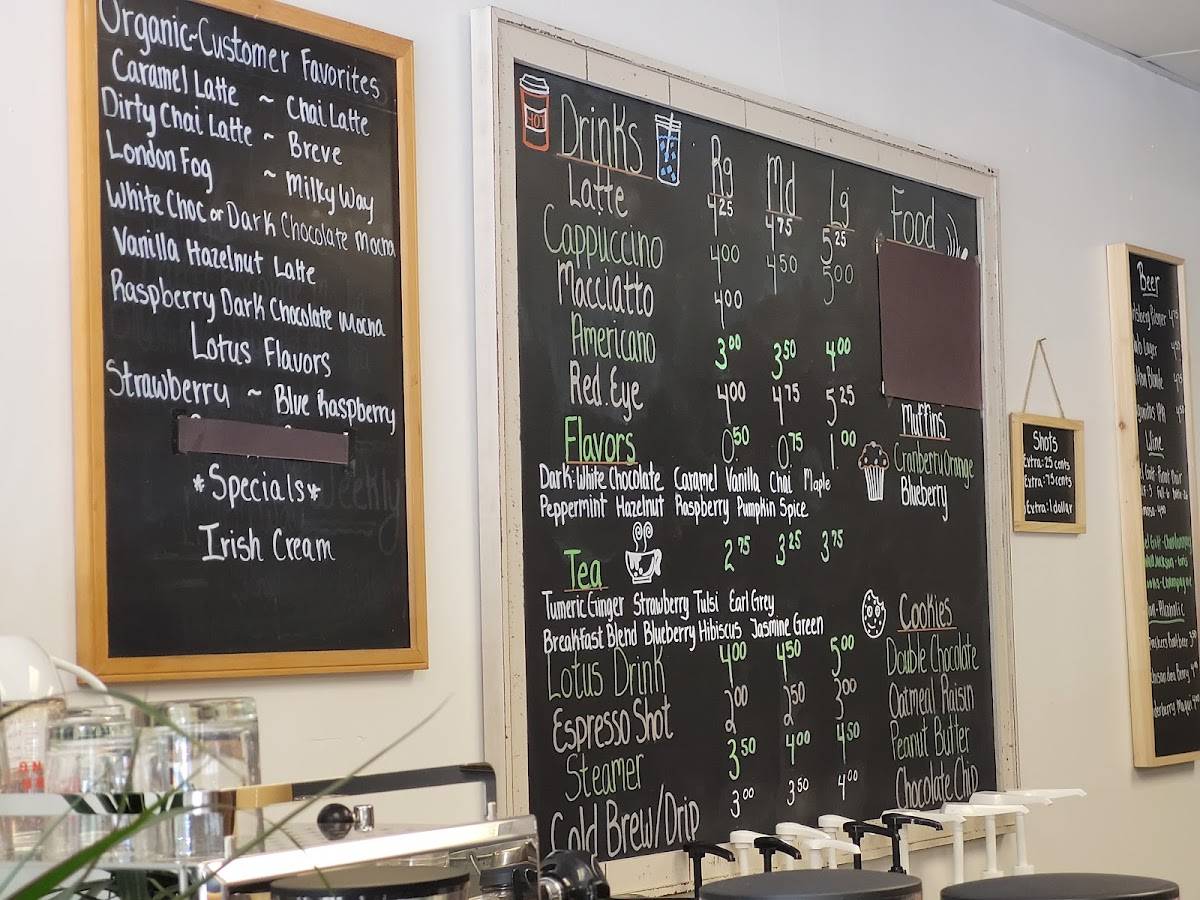 Organic~Customer Favorites
Caramel Latte ~ Chai Latte
Dirty Chai Latte ~ Breve
London Fog ~ Milky Way
White Choc or Dark Chocolate Mocha
Vanilla Hazelnut Latte
Raspberry Dark Chocolate Mocha
Lotus Flavors
Strawberry ~ Blue Raspberry
*Specials*
Irish Cream
HOT
Drinks Rg Md Lg
Latte 4.25 4.75 5.25
Cappuccino 4.00 4.50 5.00
Macciatto 4.00
Americano 3.00 3.50 4.00
Red Eye 4.00 4.75 5.25
Flavors 0.50 0.75 1.00
Dark·White Chocolate Caramel Vanilla Chai Maple
Peppermint Hazelnut Raspberry Pumpkin Spice
Tea 2.75 3.25 3.75
Tumeric Ginger Strawberry Tulsi Earl Grey
Breakfast Blend Blueberry Hibiscus Jasmine Green
Lotus Drink 4.00 4.50 5.00
Espresso Shot 2.00 2.50 3.00
Steamer 3.50 4.00 4.50
Cold Brew/Drip 3.00 3.50 4.00
Food
Muffins
Cranberry Orange
Blueberry
Cookies
Double Chocolate
Oatmeal Raisin
Peanut Butter
Chocolate Chip
Shots
Extra: 25 cents
Extra: 75 cents
Extra: 1 dollar
Beer
Pilsner 4.75
Lager
Blonde
IPA
Wine